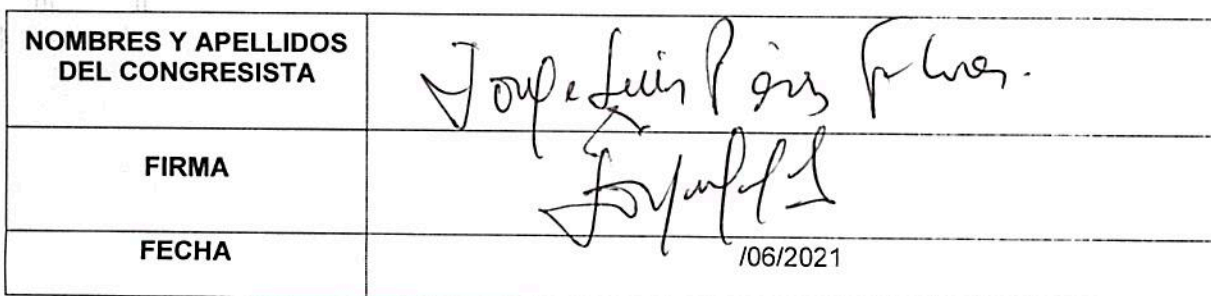 NOMBRES Y APELLIDOS
DEL CONGRESISTA
Jorge Luis Pérez
FIRMA
FECHA
/06/2021